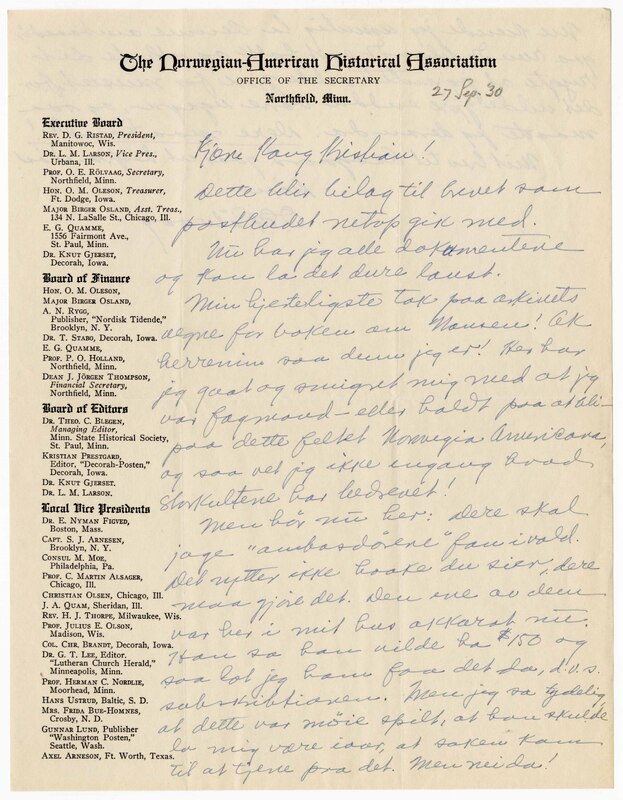 The Norwegian-American Historical Association
OFFICE OF THE SECRETARY
Northfield, Minn.
27 Sep. 30
Executive Board
REV. D. G. RISTAD, President,
Manitowoc, Wis.
DR. L. M. LARSON, Vice Pres.,
Urbana, Ill.
PROF. O. E. RÖLVAAG, Secretary,
Northfield, Minn.
HON. O. M. OLESON, Treasurer,
Ft. Dodge, Iowa.
MAJOR BIRGER OSLAND, Asst. Treas.,
134 N. LaSalle St., Chicago, Ill.
E. G. QUAMME,
1556 Fairmont Ave.,
St. Paul, Minn.
DR. KNUT GJERSET,
Decorah, Iowa.
Board of Finance
HON. O. M. OLESON,
MAJOR BIRGER OSLAND,
A. N. RYGG,
Publisher, "Nordisk Tidende,"
Brooklyn, N. Y.
DR. T. STABO, Decorah, Iowa.
E. G. QUAMME,
PROF. P. O. HOLLAND,
Northfield, Minn.
DEAN J. JÖRGEN THOMPSON,
Financial Secretary,
Northfield, Minn.
Board of Editors
DR. THEO. C. BLEGEN,
Managing Editor,
Minn. State Historical Society,
St. Paul, Minn.
KRISTIAN PRESTGARD,
Editor, "Decorah-Posten,"
Decorah, Iowa.
DR. KNUT GJERSET.
DR. L. M. LARSON.
Local Vice Presidents
DR. E. NYMAN FIGVED,
Boston, Mass.
CAPT. S. J. ARNESEN,
Brooklyn, N. Y.
CONSUL M. MOE,
Philadelphia, Pa.
PROF. C. MARTIN ALSAGER,
Chicago, Ill.
CHRISTIAN OLSEN, Chicago, Ill.
J. A. QUAM, Sheridan, Ill.
REV. H. J. THORPE, Milwaukee, Wis.
PROF. JULIUS E. OLSON,
Madison, Wis.
COL. CHR. BRANDT, Decorah, Iowa.
DR. G. T. LEE, Editor.
"Lutheran Church Herald,"
Minneapolis, Minn.
PROF. HERMAN C. NORDLIE,
Moorhead, Minn.
HANS USTRUD, Baltic, S. D.
MRS. FRIDA BUE-HOMNES,
Crosby, N. D.
GUNNAR LUND, Publisher
"Washington Posten,"
Seattle, Wash.
AXEL ARNESON, Ft. Worth, Texas.
Kjære Kong Kristian!
Dette blir bilag til brevet som
postbudet netop gik med.
Nu har jeg alle dokumentene
og kan la det dure laust.
Min hjerteligste tak paa arkivets
vegne for boken om Nansen! Ak
herremin saa dum jeg er! Her har
jeg gaat og smigret mig med at jeg
var fagmand – eller holdt paa at bli –
paa dette feltet Norvegia Americana,
og saa vet jeg ikke engang hvad
Storkultene har bedrevet!
Men hør nu her: Dere skal
jage "ambasdørene" fan i vold.
Det nytter ikke hvake du sier, dere
maa gjøre det. Den ene av dem
var her i mit hus akkurat nu.
Han sa han vilde ha $150 og
saa lot jeg ham faa det da, d.v.s.
subskribtionen. Men jeg sa tydelig
at dette var møie spilt, at han skulde
la mig være iaar, at saken kom
til at tjene paa det. Men nei da!